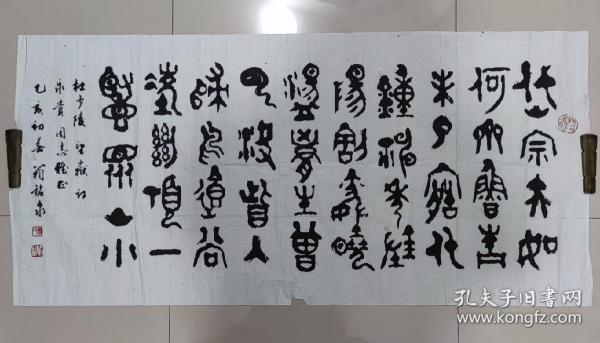 岱宗夫如
何齊魯青
未了造化
鍾神秀陰
陽割昏曉
盪胸生曾
雲決眥入
歸鳥會當
凌絕頂一
覽眾山小
杜少陵望嶽詩
永貴同志雅正
乙亥初春
孔夫子旧书网
www.kongfz.com